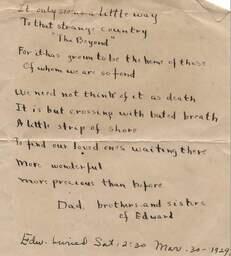 It only seems a little way
To that strange country
"The Beyond"
For it has grown to be the home of those
Of whom we are so fond
We need not think of it as death
It is but crossing with bated breath
A little strip of shore
To find our loved ones waiting there
More wonderful
more precious than before.
Dad, brothers and sisters
of Edward
Edw. buried Sat. 2:30 Mar. 30 - 1929